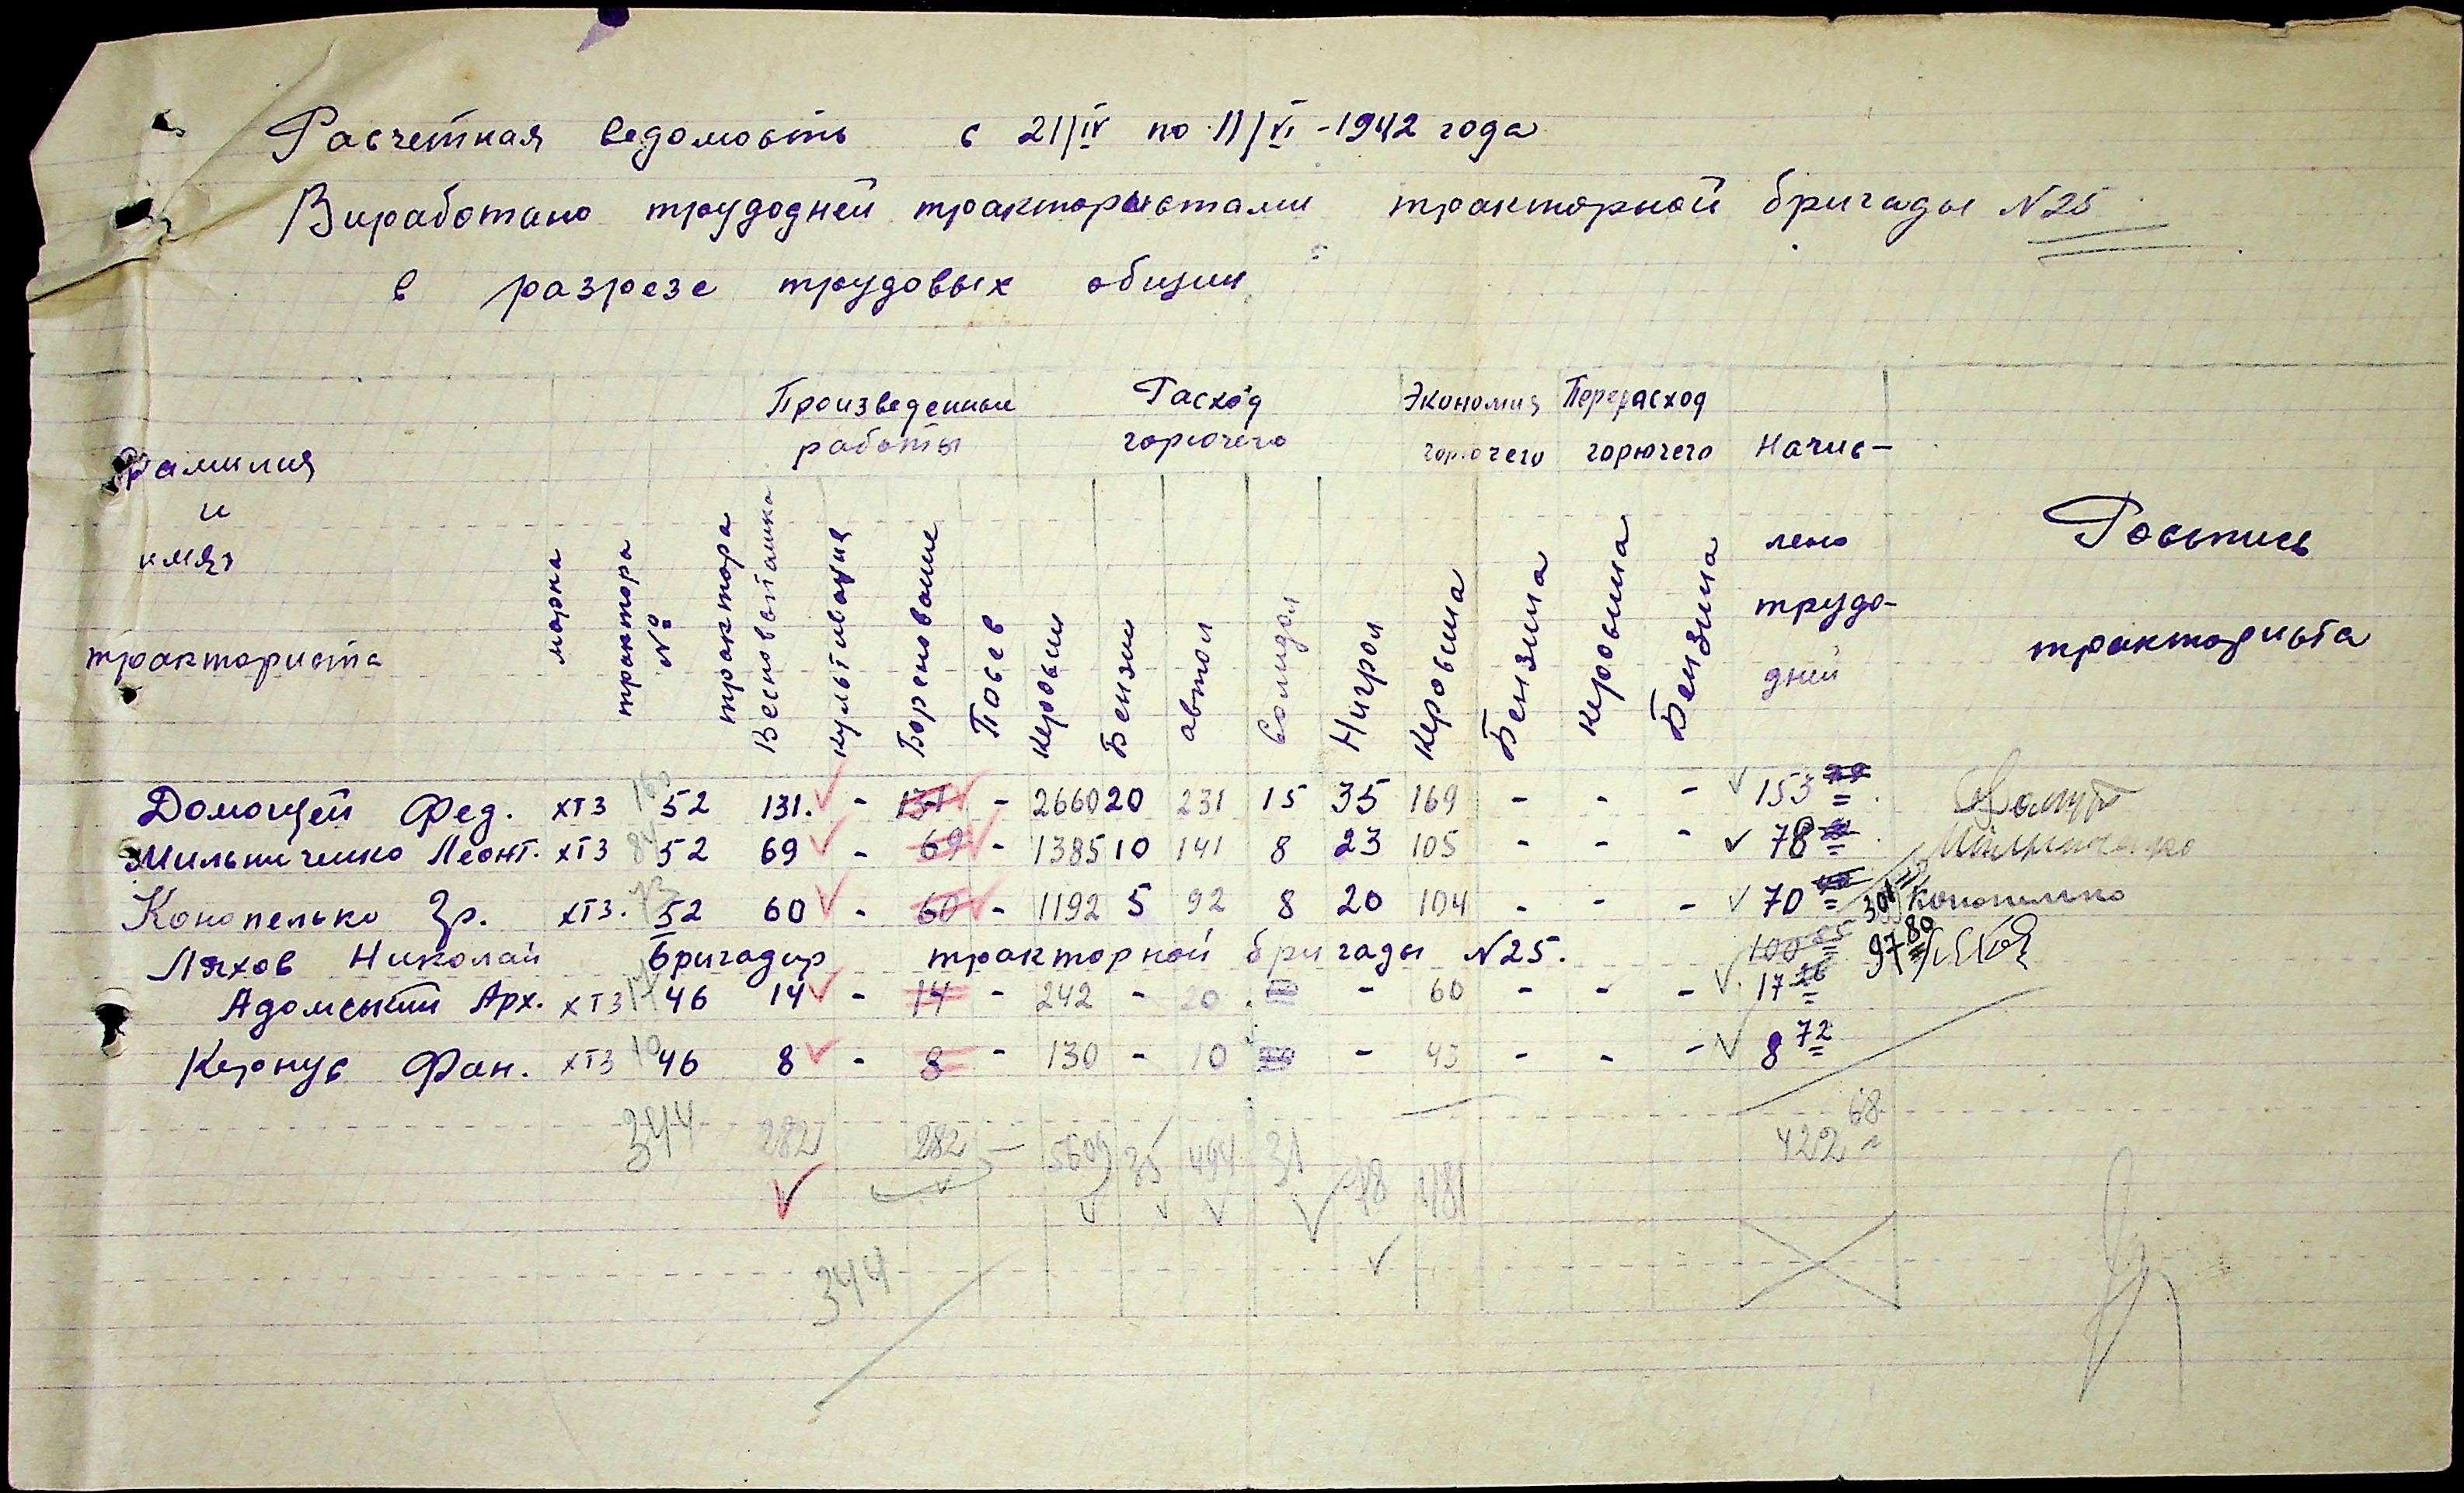 Расчетная ведомость с 21/IV по 11/VI - 1942 года
Выработано трудодней трактористами тракторной бригады N25
в разрезе трудовых общин
Фамилия и имя тракториста
марка трактора
№ трактора
Произведенные работы
Весновспашка
культивация
Боронование
Посев
Расход горючего
Керосин
Бензин
автол
Солидол
Нигрол
Экономия горючего
Керосина
Бензина
Перерасход горючего
Керосина
Бензина
Начис-
лено
трудо-
дней
Роспись
тракториста
Домощей Фед. ХТЗ 160 52 131. - 131 - 2660 20 231 15 35 169 - - - 153
Мильниченко Леонт. ХТЗ 84 52 69 - 69 - 1385 10 141 8 23 105 - - - 78
Конопелько Гр. ХТЗ. 73 52 60 - 60 - 1192 5 92 8 20 104 - - - 70 Конопелько
Ляхов Николай бригадир тракторной бригады N25. 100 97 80
Адомский Арх. ХТЗ 17 46 14 - 14 - 242 - 20 - 60 - - - 17
Кернус Фан. ХТЗ 10 46 8 - 8 - 130 - 10 - 43 - - - 8 72
344 282 282 - 5609 35 494 31 78 481 422 68
344